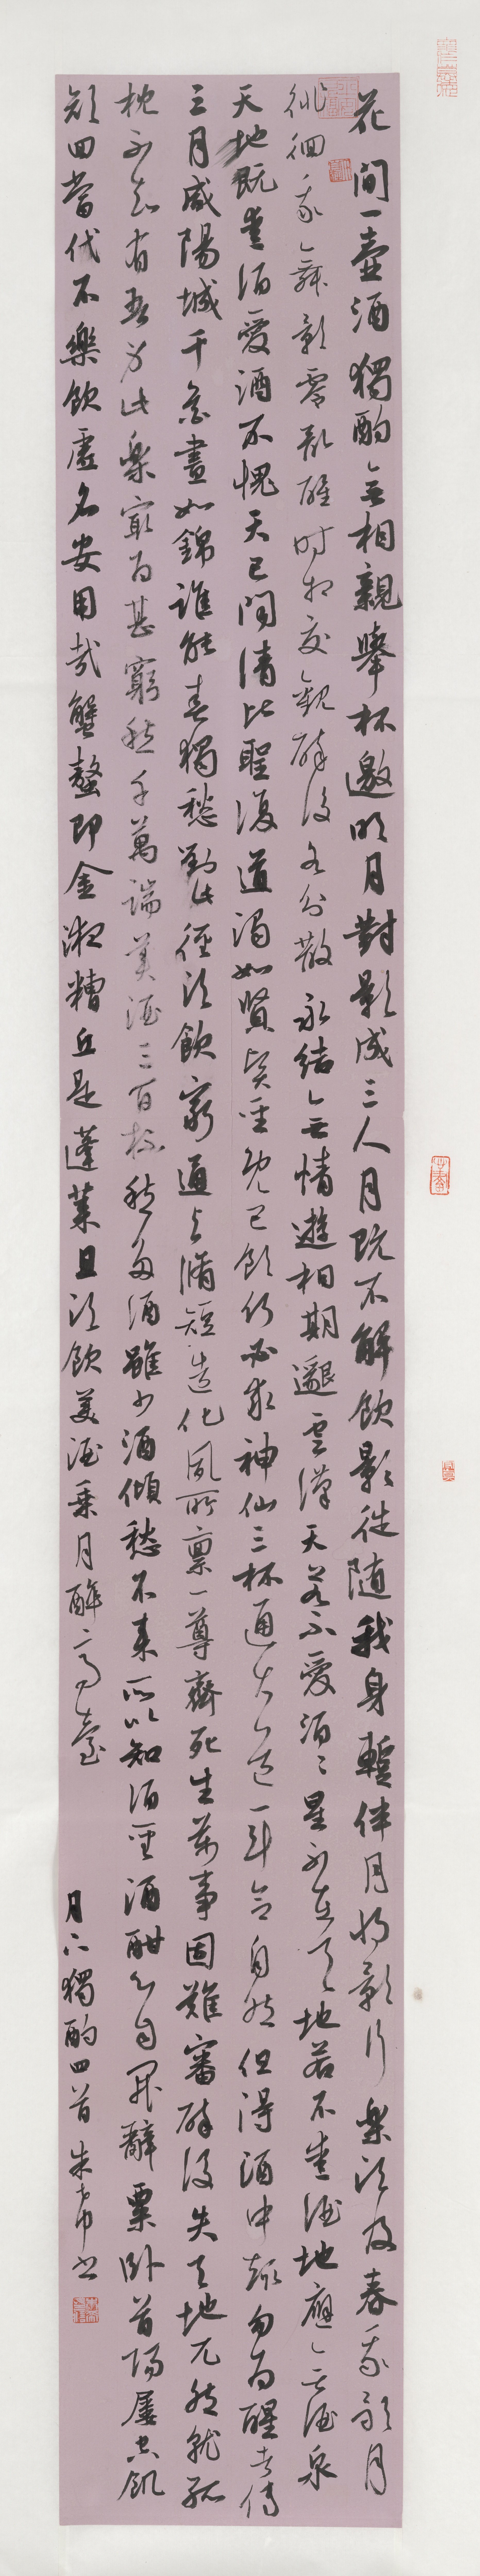 花間一壺酒獨酌無相親舉杯邀明月對影成三人月既不解飲影徒隨我身暫伴月將影行樂須及春我歌月
徘徊我舞影零亂醒時相交歡醉後各分散永結無情遊相期邈雲漢天若不愛酒〻星不在天地若不愛酒地應無酒泉
天地既愛酒愛酒不愧天已聞清比聖復道濁如賢賢聖既已飲何必求神仙三杯通大道一斗合自然但得酒中趣勿為醒者傳
三月咸陽城千花晝如錦誰能春獨愁對此徑須飲窮通與脩短造化夙所稟一尊齊死生萬事固難審醉後失天地兀然就孤
枕不知有吾身此樂最為甚窮愁千萬端美酒三百杯愁多酒雖少酒傾愁不來所以知酒聖酒酣心自開辭粟臥首陽屢空飢
顏回當代不樂飲虛名安用哉蟹螯即金液糟丘是蓬萊且須飲美酒乘月醉高臺
月下獨酌四首 朱 書